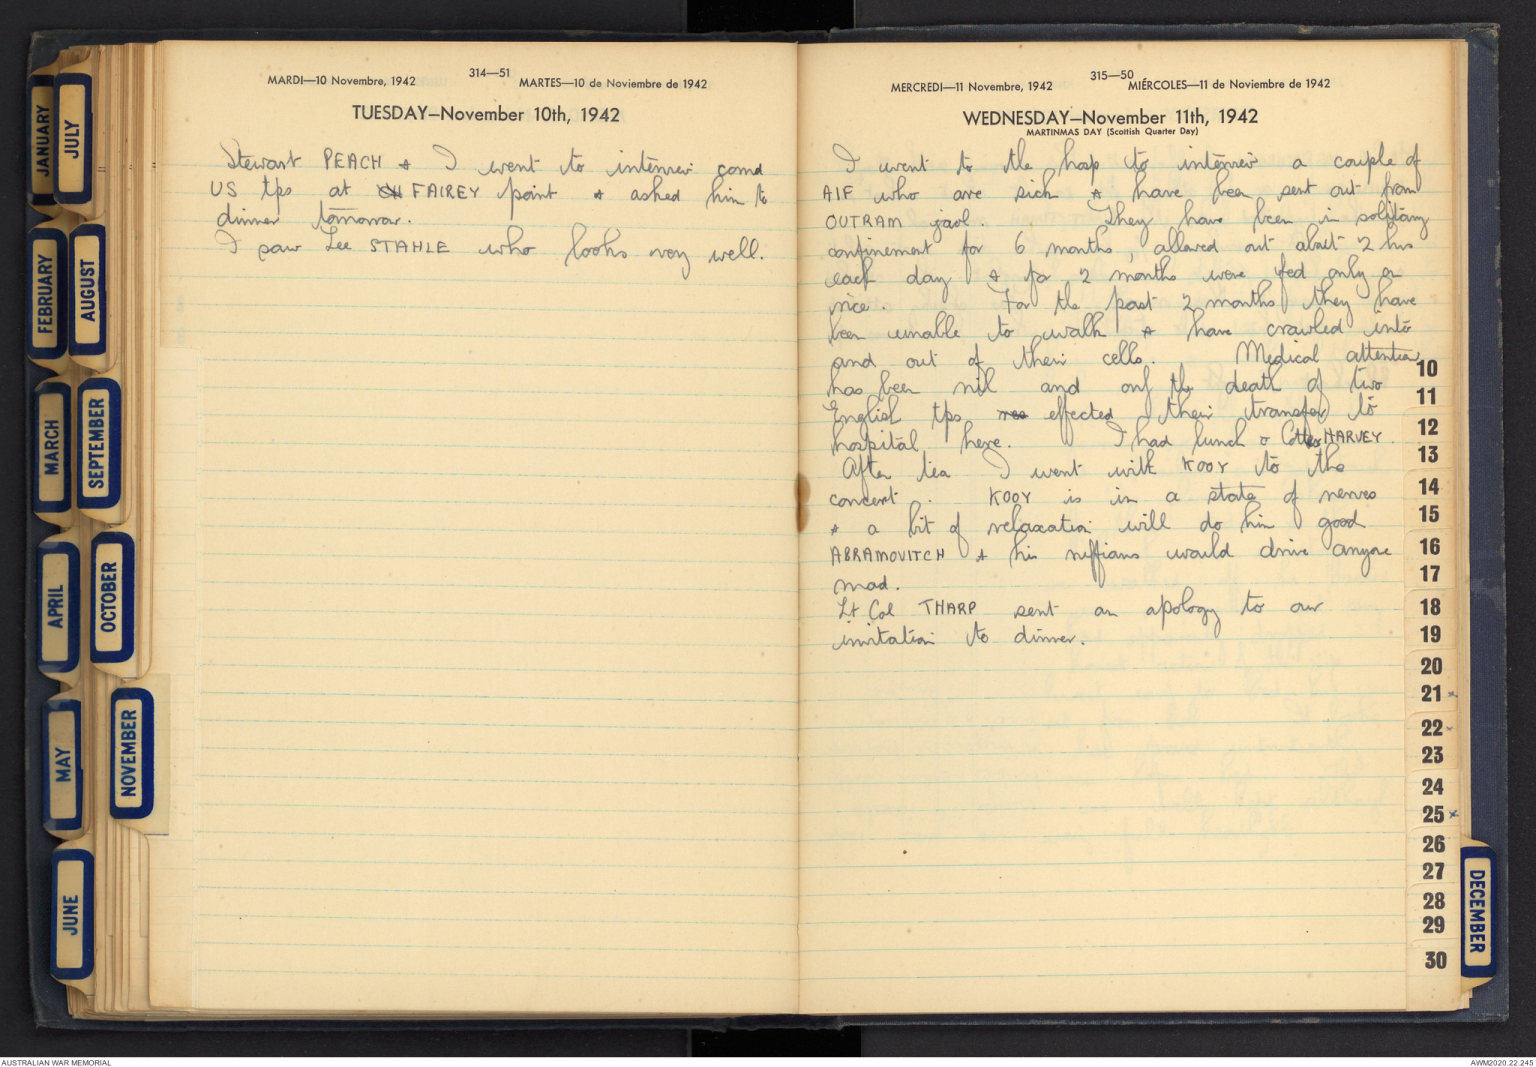 JANUARY
JULY
FEBRUARY
AUGUST
MARCH
SEPTEMBER
APRIL
OCTOBER
MAY
NOVEMBER
JUNE
314—51
MARDI—10 Novembre, 1942 MARTES—10 de Noviembre de 1942
TUESDAY—November 10th, 1942
Stewart PEACH & I went to interview comd
US tps at FAIREY point & asked him to
dinner tomorrow.
I saw Lee STAHLE who looks very well.
315—50
MERCREDI—11 Novembre, 1942 MIÉRCOLES—11 de Noviembre de 1942
WEDNESDAY—November 11th, 1942
MARTINMAS DAY (Scottish Quarter Day)
I went to the hosp to interview a couple of
AIF who are sick & have been sent out from
OUTRAM jaol. They have been in solitary
confinement for 6 months, allowed out about 2 hrs
each day & for 2 months were fed only on
rice. For the past 2 months they have
been unable to walk & have crawled into
and out of their cells. Medical attention
has been nil and only the death of two
English tps effected their transfer to
hospital here. I had lunch c Cotter HARVEY.
After tea I went with KOOY to the
concert. KOOY is in a state of nerves
& a bit of relaxation will do him good
ABRAMOVITCH & his ruffians would drive anyone
mad.
Lt Col THARP sent an apology to our
invitation to dinner.
10
11
12
13
14
15
16
17
18
19
20
21
22
23
24
25
26
27
28
29
30
DECEMBER
AUSTRALIAN WAR MEMORIAL
AWM2020.22.245